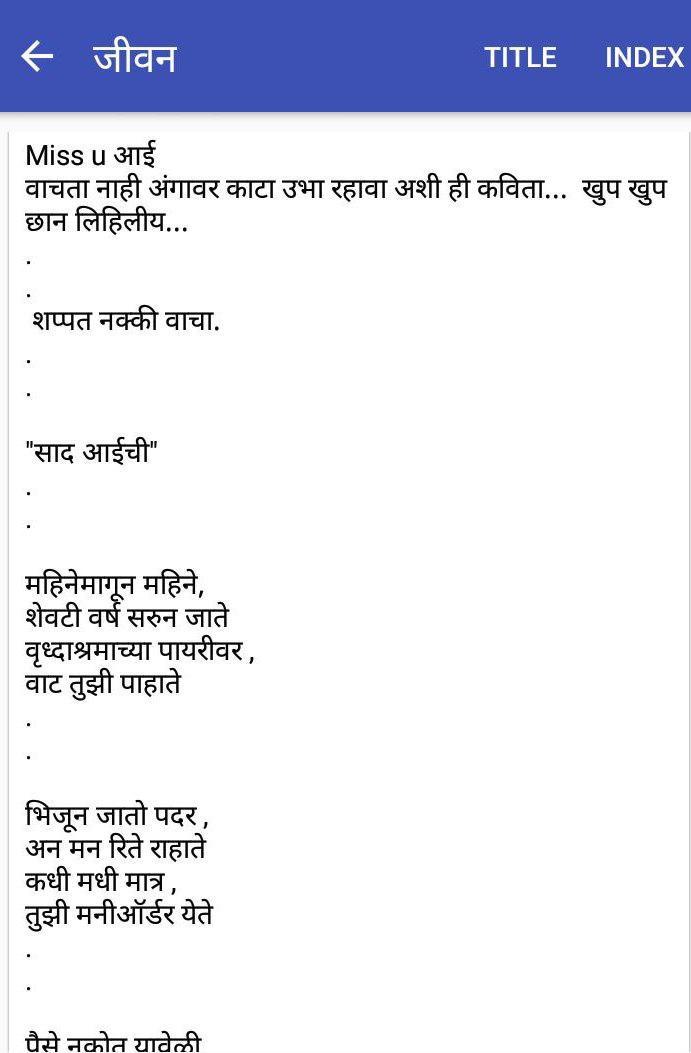 जीवन TITLE INDEX
Miss u आई
वाचता नाही अंगावर काटा उभा रहावा अशी ही कविता... खुप खुप
छान लिहिलीय...
.
.
शप्पत नक्की वाचा.
.
.
"साद आईची"
.
.
महिनेमागून महिने,
शेवटी वर्ष सरुन जाते
वृध्दाश्रमाच्या पायरीवर ,
वाट तुझी पाहाते
.
.
भिजून जातो पदर ,
अन मन रिते राहाते
कधी मधी मात्र ,
तुझी मनीऑर्डर येते
.
.
पैसे नकोत यावेळी